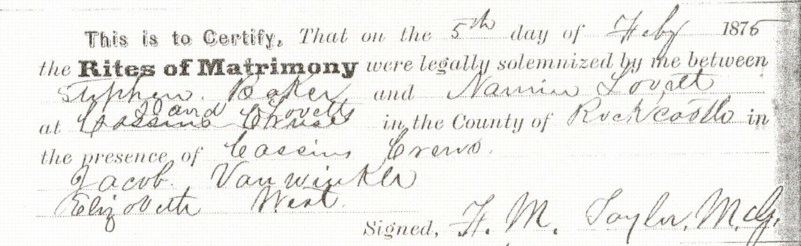 This is to Certify, That on the 5th day of Feby 1875
the Rites of Matrimony were legally solemnized by me between
Stephen Baker and Nannie Lovett
David Lovetts
at Cassius Crews in the County of Rockcastle in
the presence of Cassius Crews.
Jacob Vanwinkle
Elizabeth West
Signed, F. M. Taylor, M.G.